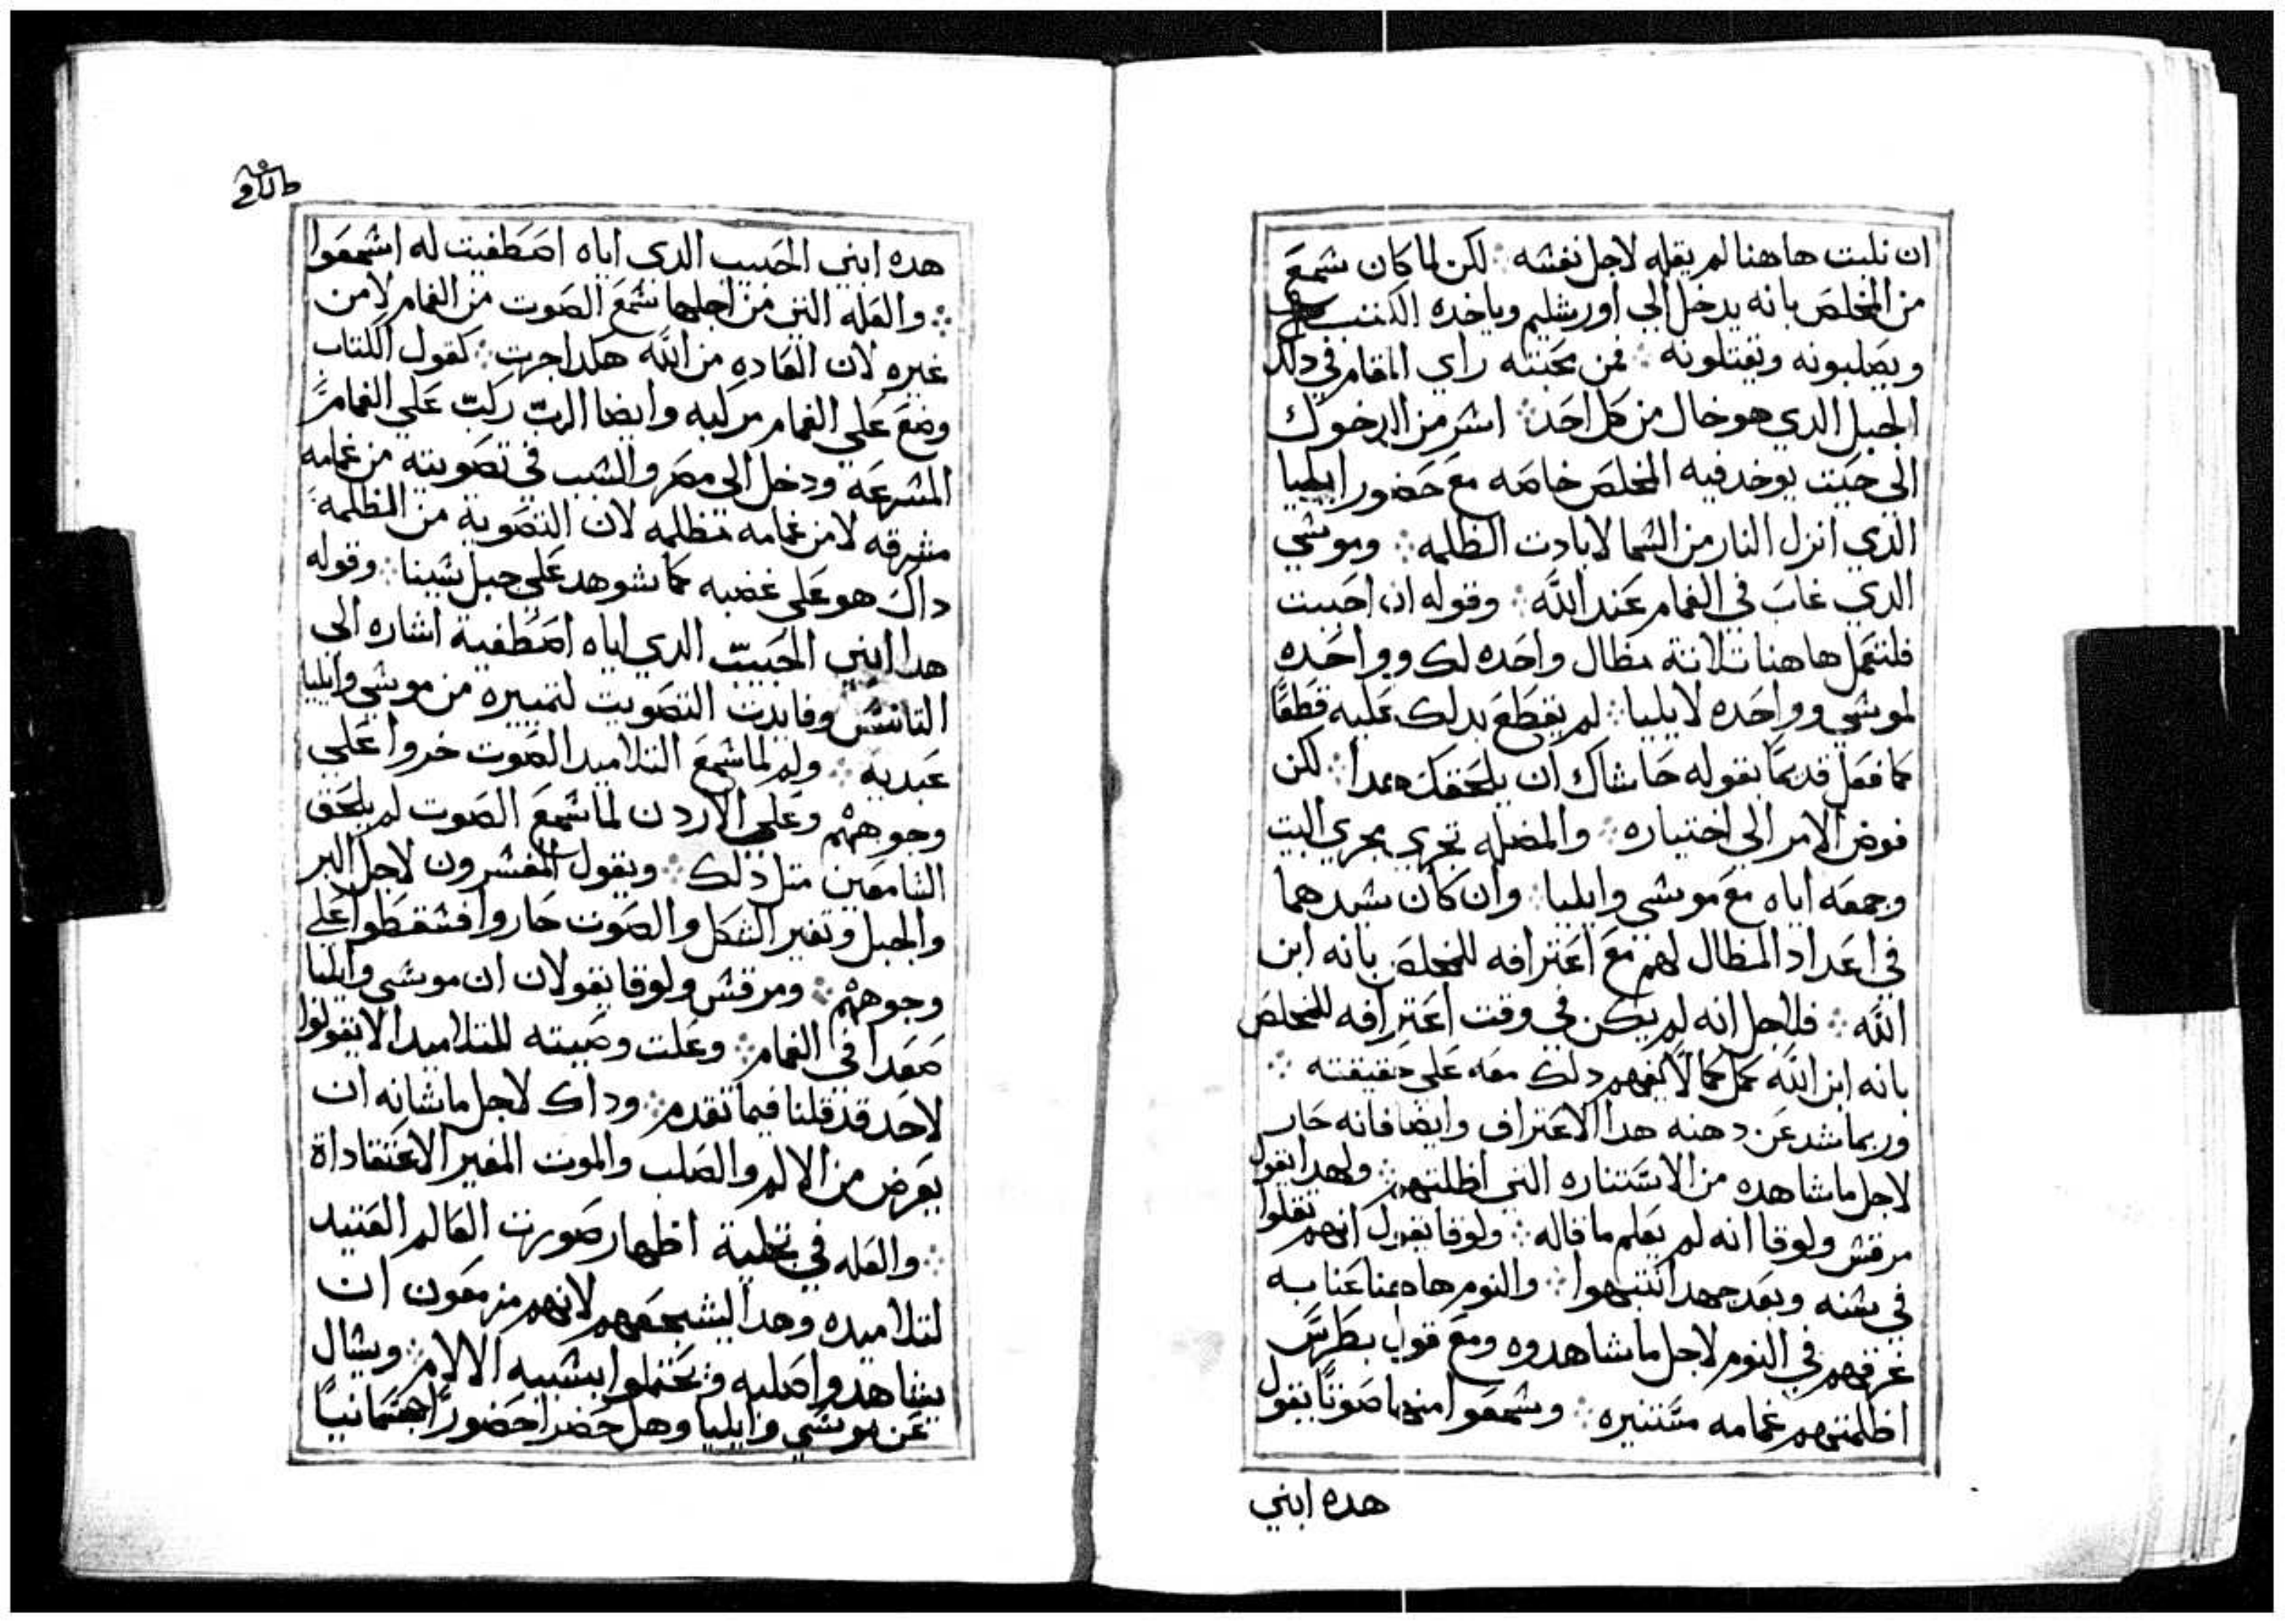 ان نلبت هاهنا لم يقله لاجل نفسه ⁘ لكن لما كان سمع
من المخلص بانه يدخل الي اورشليم وياخده الكتبه
ويصلبونه ويقتلونه ⁘ فمن محبته راي المقام في دلك
الجبل الدي هو خال من كل احد ⁘ اشر من الدخول
الي حيت يوخد فيه المخلص خاصه مع حضور ايليا
الدي انزل النار من السما لابادت الظلمه ⁘ وموسي
الدي غاب في الغمام عند الله ⁘ وقوله ان احببت
فلنعمل هاهنا تلاتة مظال واحده لك وواحده
لموسي وواحده لايليا ⁘ لم يقطع بدلك عليه قطعًا
كما فعل قديمًا بقوله حاشاك ان يلحقك هدا ⁘ لكن
فوض الامر الي اختياره ⁘ والمضله تجري مجري البيت
وجمعه اياه مع موسي وايليا ⁘ وان كان سيدهما
في اعداد المظال لهم مع اعترافه للمخلص بانه ابن
الله ⁘ فلاجل انه لم يكن في وقت اعترافه للمخلص
بانه ابن الله كمل كمالا يفهم دلك معه علي حقيقته ⁘
وربما شد عن دهنه هدا الاعتراف وايضا فانه حار
لاجل ما شاهده من الاستناره التي اظلتهم ⁘ ولهدا يقول
مرقس ولوقا انه لم يعلم ما قاله ⁘ ولوقا يقول انهم تقلوا
في سنه وبعد جهد انتبهوا ⁘ والنوم هاهنا عنا به
غرقهم في النوم لاجل ما شاهدوه ومع قول بطرس
اظلتهم غمامه مستنيره ⁘ وسمعوا منها صوتًا يقول
هده ابني
هده ابني الحبيب الدي اياه اصطفيت له اسمعوا
⁘ والعله التي من اجلها سمع الصوت من الغمام لا من
غيره لان العاده من الله هكدا جرت ⁘ كقول الكتاب
وضع علي الغمام مركبه وايضا الرب ركب علي الغمام
المسرعه ودخل الي مصر والسبب في تصويته من غمامه
مشرقه لا من غمامه مظلمه لان التصوية من الظلمه
داك هو علي غضبه كما شوهد علي جبل سينا ⁘ وقوله
هدا ابني الحبيب الدي اياه اصطفية اشاره الي
التانس وفايدت التصويت لتمييزه من موسي وايليا
عبديه ⁘ ولم لما سمع التلاميد الصوت خروا علي
وجوههم وعلي الاردن لما سمع الصوت لم يلحق
السامعين متل دلك ⁘ ويقول المفسرون لاجل البر
والجبل وتغير الشكل والصوت حاروا فسقطوا علي
وجوههم ⁘ ومرقس ولوقا يقولان ان موسي وايليا
صعدا في الغمام ⁘ وعلت وصيته للتلاميد الا يقولوا
لاحد قد قلنا فيما تقدم ⁘ وداك لاجل ما شانه ان
يعرض من الالم والصلب والموت المغير الاعتقاداة
⁘ والعله في تجلية اظهار صورت العالم العتيد
لتلاميده وهدا ليشجعهم لانهم مزمعون ان
يشاهدوا صلبه ويحتملوا بسببه الالام ⁘ ويسال
عن موسي وايليا وهل حضرا حضورًا جسمانيًا